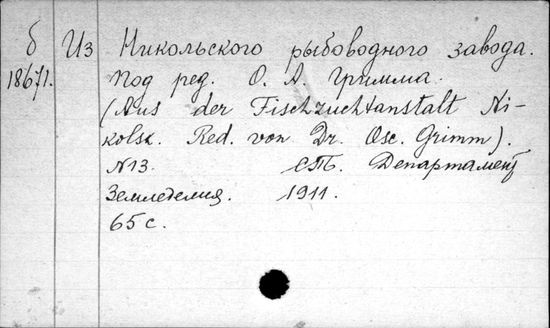 б Из Никольского рыбоводного завода.
18671. Под ред. О. А. Гримма.
(Aus der Fischzuchtanstalt Ni-
kolsk. Red. von Dr. Osc. Grimm).
N13. СПб. Департамент
Земледелия. 1911.
65 с.